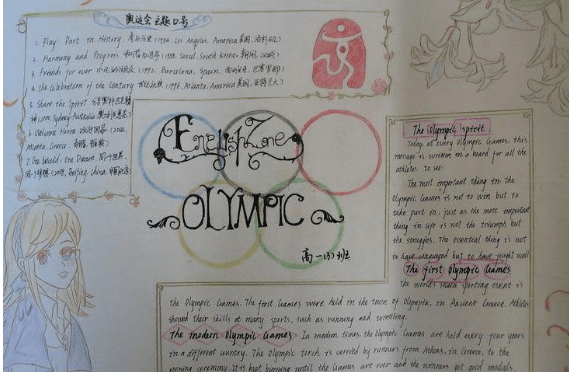 奥运会主题口号
1. Play Part in History. 参与历史 (1984, Los Angeles, America 美国, 洛杉矶)
2. Harmony and Progress 和谐与进步 (1988, Seoul, South Korea
3. Friends for ever 永远的朋友 (1992, Barcelona, Spain, 西班牙, 巴塞罗那)
4. The Celebration of the Century 世纪庆典 (1996, Atlanta, America 美国,
5. Share the Spirit 分享奥林匹克精
神 (2000, Sydney, Australia
6. Welcome Home (2004,
Athens, Greece 希腊,
7. One World One Dream 同一个世界
同一个梦想 (2008, Beijing, China, 中国
English Zone
OLYMPIC
高一(3)班
The Olympic Spirit
Today at every Olympic Games, this
message is written on a board for all the
athletes to see:
The most important thing in the
Olympic Games is not to win but to
take part in, just as the most important
thing in life is not the triumph but
the struggles. The essential thing is not
to have conquered but to have fought well.
The first Olympic Games
The world's main sporting event is
the Olympic Games. The first Games were held in the town of Olympia, in Ancient Greece. Athletes
showed their skills at many sports, such as running and wrestling.
The modern Olympic Games In modern times, the Olympic Games are held every four years
in a different country. The Olympic torch is carried by runners from Athens, in Greece, to the
opening ceremony. It is kept burning until the Games are over and the winners get gold medals.